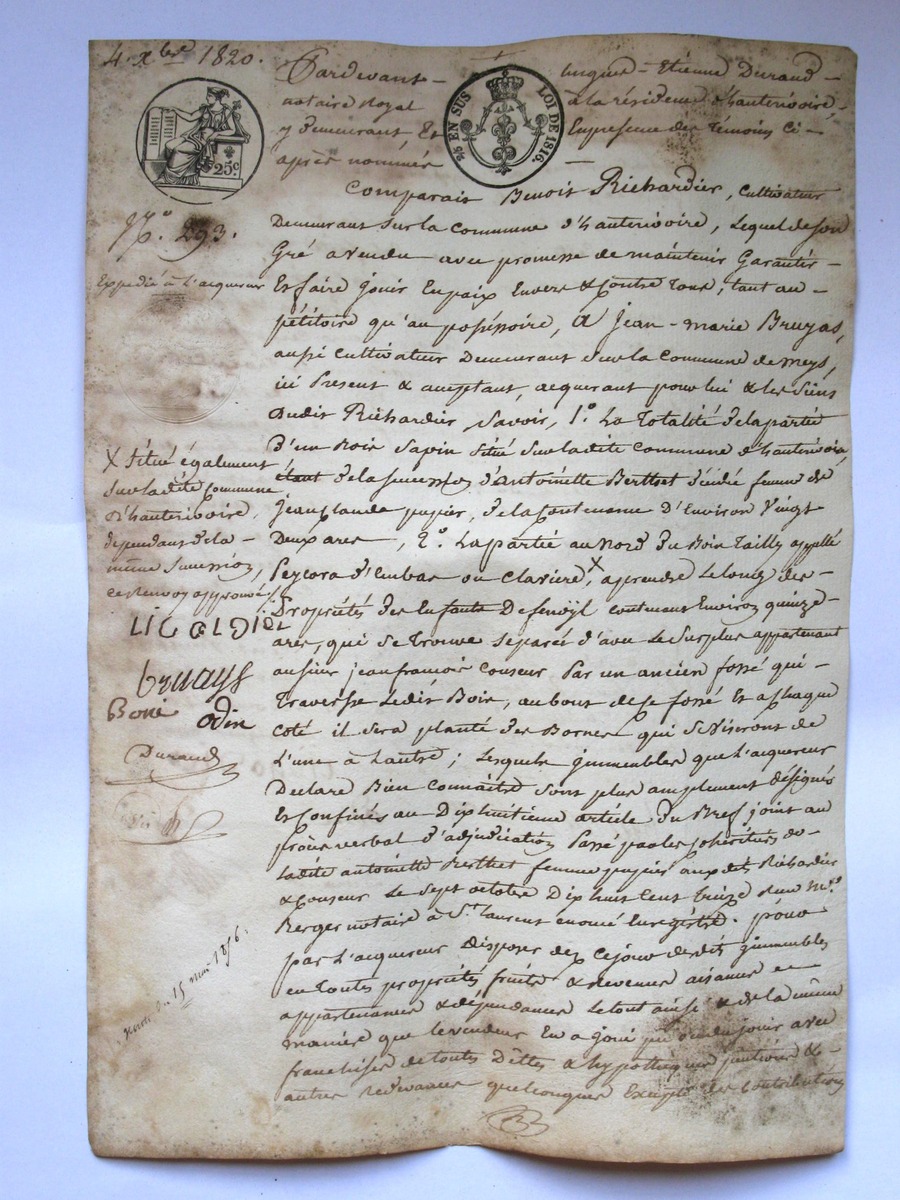 4. xbre 1820.
Pardevant hugues - Etienne Durand -
notaire Royal à la résidence d'hauterivoire,
y demeurant Et En presence des témoins ci -
après nommés —
25c
25/c EN SUS LOI DE 1816.
Comparait Benoit Richardier, cultivateur
Demeurant sur la commune d'hauterivoire, Lequel de son
Gré a vendu avec promesse de maintenir Garantir -
Et faire jouir En paix Envers & Contre tous, tant au -
pétitoire qu'au posésoire, a jean-marie Bruyas,
aussi Cultivateur Demeurant sur la commune de meys,
ici Present & aceptant, acquerant pour lui & les siens
dudit Richardier Savoir, 1.º La Totalité de la partie
d'un Bois Sapin situé sur ladite commune d'hauterivoire,
étant de la sucession d'Antoinette Berthet décédé femme de
jean claude pupier, de la Contenance d'Environ Vingt
Deux ares, 2.º La partie au nord du Bois Tailly appellé
d'Embas ou Claviere, X a prendre Le long des -
Propriétés des Enfants Defenoÿl contenant Environ quinze
ares, qui se Trouve separés d'avec Le Surplus appartenant
au sieur jean francois couseur Par un ancien fossé qui -
Traverse Ledit Bois, au bout de ce fossé Et a chaque
coté il sera planté des Bornes qui se Viseront de
L'une à Lautre; Lesquels immeubles que L'acquereur
Declare Bien connaitre sont plus amplement désignés
Et Confinés au Dix huitieme article du Bref joint au
procès verbal d'adjudication Passé par les cohéritiers de
ladite antoinette Berthet femme pupier aux dits Richardier
& Couseur Le Sept octobre Dix huit Cent treize devant M.e
Berger notaire à St. Laurent Enregistré. pour
par L'acquereur disposer dez Ce jour desdits immeubles
en toutes propriétés fruits & Revenus aisances
appartenances & dépendances Le tout ainsi & de la même
maniere que le vendeur En a joui ou du jouir avec
franchise de toutes Dettes & hypotheques &
autres redevances quelconques Excepté les contributions
N.º 293.
Expedié à L'acquereur
X situé également
sur ladite Commune
d'hauterivoire,
dependant de la -
même sucession,
ce renvoy approuvé
bruyas
Boni
odin
Durand
15 mai 1856